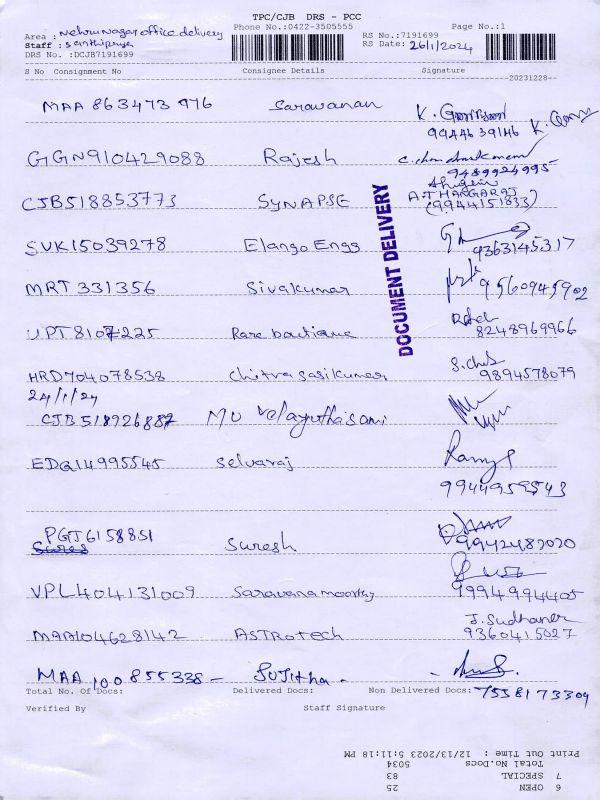 TPC/CJB DRS - PCC
Phone No.:0422-3505555 Page No.:1
Area : Nehru nagar office delivery RS No.:7191699
Staff : Santhipriya RS Date: 26/1/2024
DRS No. :DCJB7191699
S No Consignment No Consignee Details Signature
20231228--
MAA 863473 976 Saravanan K.
9944639146 K.
GGN910429088 Rajesh
9489924995
CJB518853773 SYNAPSE A.THANGARAJ
(9944151833)
SUK15039278 Elango Engg 9363145317
MRT 331356 Sivakumar 9560945902
UPT8107225 Rare boutique
8248969966
HRD704078538 Chitra sasikumar S.
9894578079
24/1/24
CJB 518926887 MU Velayuthasami
EDQ14995545 Selvaraj Ramya
9944959543
PGT6158851
Sures Suresh 9942482020
VPL404131009 Saravana moorthy 9994994405
MAA104628142 ASTROTECH J. Sudhaner
9360415027
MAA 100 855338 - Sujitha -
Total No. Of Docs: Delivered Docs: Non Delivered Docs: 7558173309
Verified By Staff Signature
DOCUMENT DELIVERY
Print Out Time : 12/13/2023 5:11:18 PM
Total No.Docs 5034
7 SPECIAL 83
6 OPEN 25